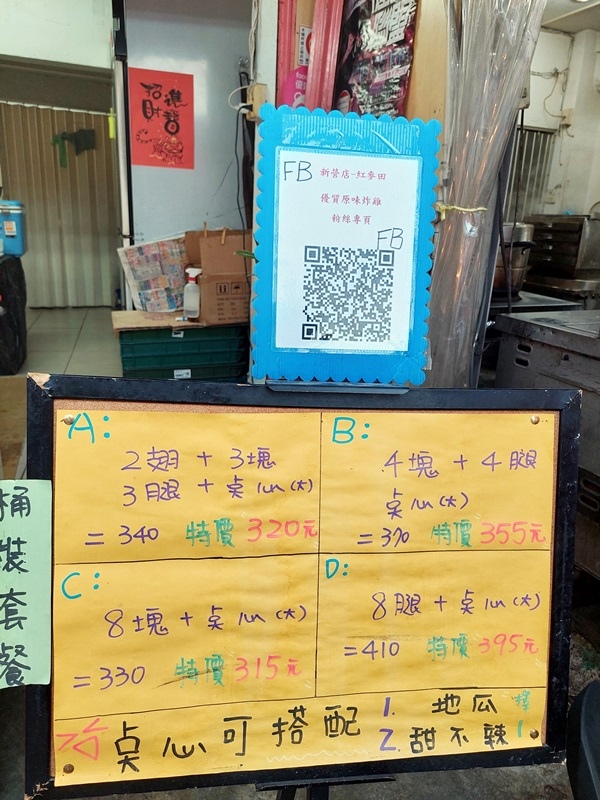 招財進寶
FB
新營店-紅麥田
優質原味炸雞
粉絲專頁
FB
桶裝套餐
A:
2翅 + 3塊
3腿 + 点心(大)
= 340 特價 320元
B:
4塊 + 4腿
点心(大)
= 370 特價 355元
C:
8塊 + 点心(大)
= 330 特價 315元
D:
8腿 + 点心(大)
= 410 特價 395元
点心可搭配
1. 地瓜
2. 甜不辣
擇1